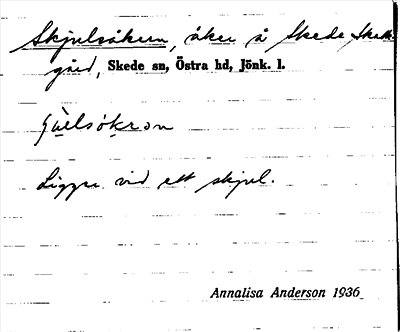 Skjulsåkern, åker å Skede Skatte
gård, Skede sn, Östra hd, Jönk. l.
Ligger vid ett skjul.
Annalisa Anderson 1936